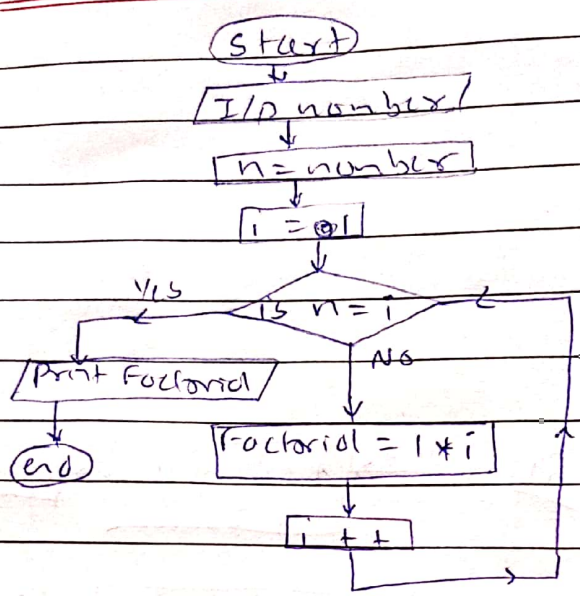 Start
I/P number
n = number
i = 1
Yes
is n = i
No
Print Factorial
Factorial = 1 * i
end
i + +